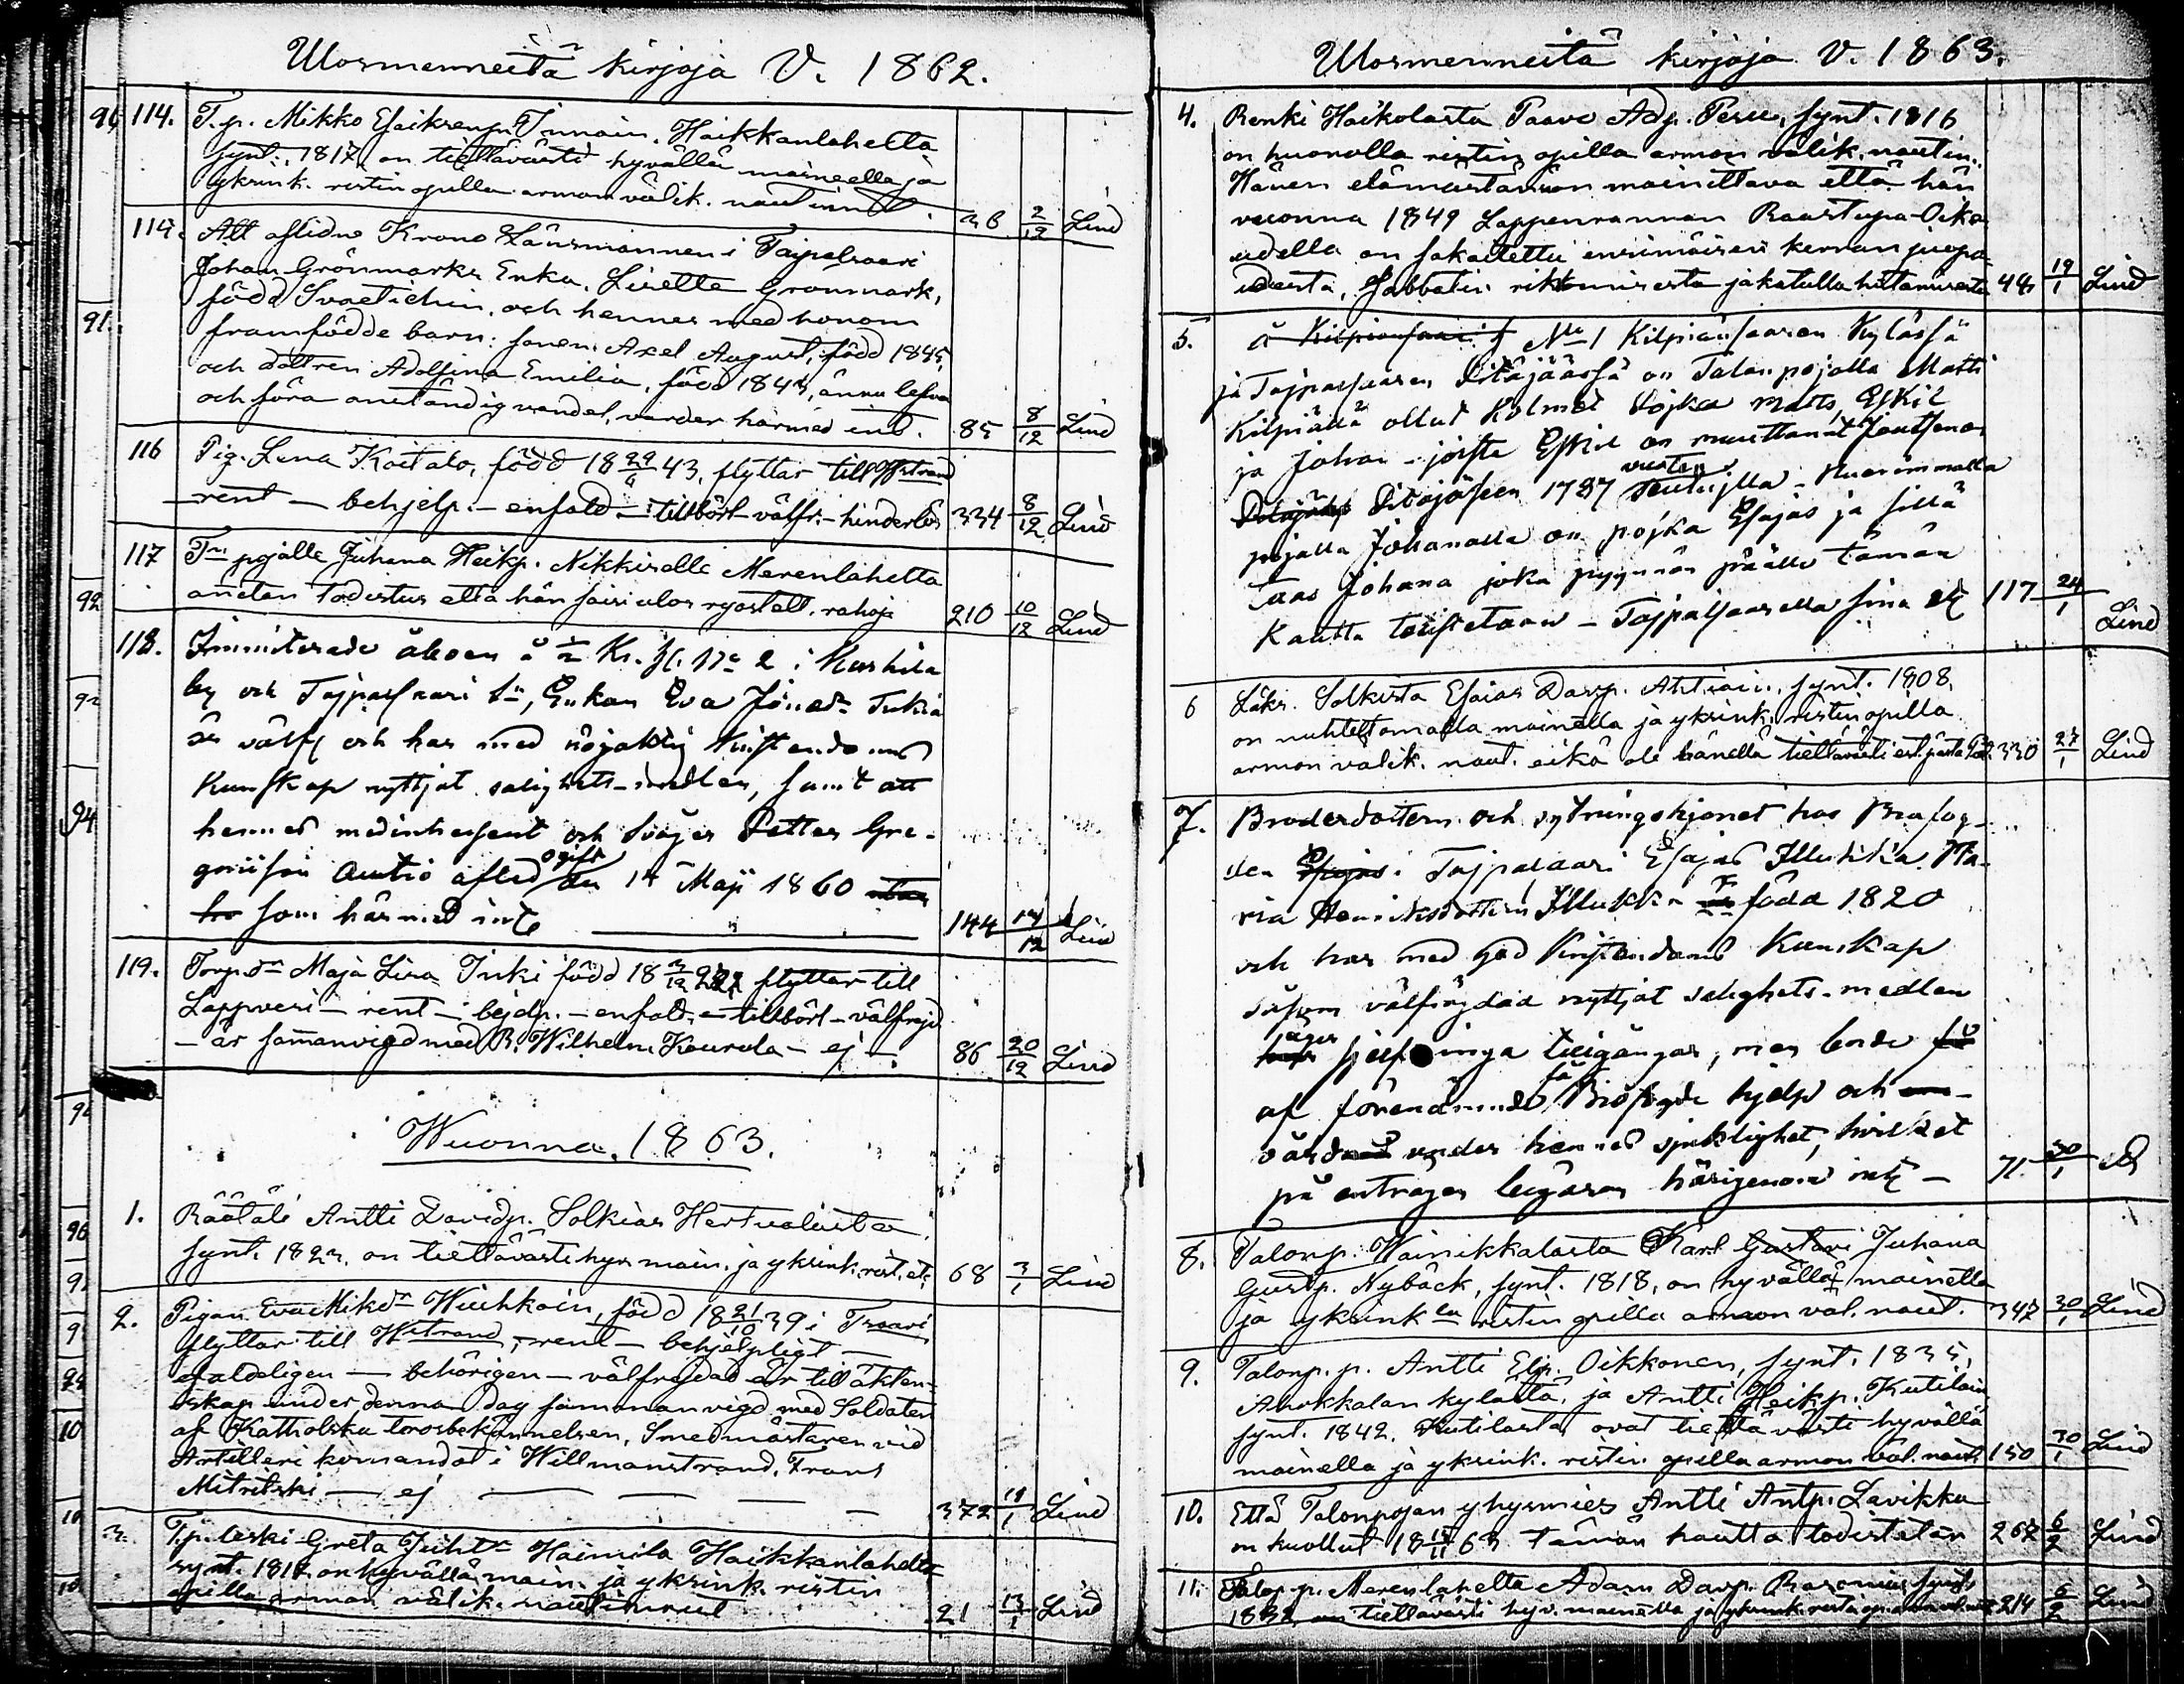 Ulosmenneitä kirjoja V. 1862.
114. T.p. Mikko Esaiksenp. Innain. Haikkanlahelta
synt. 1817, on tiettävästi hyvällä maineella ja
yksink. ristin opilla armon välik. nautinnt. 36 2/12 Lind
114. Att aflidne Krono Länsmannen i Taipalsaari
Johan Grönmarks Enka, Lisette Grönmark,
född Svaetichin, och hennes med honom
framfödde barn: sonen Axel August, född 1845,
och dottren Adolfina Emilia, född 1843, ännu lefva
och föra anständig vandel, varder härmed int. 85 8/12 Lind
116 Pig. Lena Koitalo, född 18 29/6 43, flyttar till Wstrand
rent – behjelp. – enfald. – tillbörl – välfr. – hinderlös 334 8/12 Lind
117 Tn pojalle Juhana Heikp. Nikkiselle Merenlahelta
anetan todistus että hän saisi ulos ryostelt. rahoja 210 10/12 Lind
118. Immiterade åboen å 1/2 Kr. H. No 2 i Kurhila
by och Tajpalsaari Sn, Enkan Eva Jönsdr Tukia
är välfr. och har med nöjaktig Kristendoms
Kunskap nyttjat salighets-medlen, samt att
hennes medinteressent och Svåger Petter Gre-
goriison Autio afled ogift den 14 Maji 1860
som härmed int. 144 14/12 Lind
119. Torp.dr Maja Lisa Inki född 18 3/12 flyttar till
Lappvesi – rent – bejelp. – enfald. – tillbörl – välfrejd
– är sammanvigd med R. Wilhelm Kourola – ej –. 86 20/12 Lind
Wuonna. 1863.
1. Räätäli Antti Davidp. Solkias Hertualasta
synt. 1823. on tiettävästi hyv. main. ja yksink. rist. etc. 68 3/1 Lind
2. Pigan Eva Miksdr Wiuhkoin, född 18 21/10 39 i Tsaari
flyttar till Wstrand, – rent – behjelpligt –
efaldeligen – behörigen – välfrejdad är till äkten-
skap under denna dag sammanvigd med Soldaten
af Katholska trosbekännelsen, Smedmästaren vid
Artilleri komandot i Willmanstrand, Frans
Mitritski – ej – – – – 372 11/1 Lind
3. T.p. leski Greta Juhtr Haimila Haikkanlahelta
synt. 1817 on hyvällä main. ja yksink. ristin
opilla armon välik. nautinnut 21 13/1 Lind
Ulosmenneitä kirjoja V. 1863.
4. Renki Haikolasta Paavo Adp. Pesu, synt. 1816
on huonolla ristin opilla armon välik. nautin.
Hänen elämästänsä on mainittava että hän
vuonna 1849 Lappenrannan Raastupa-Oikeu
udella on sakoitettu ensimäisen kerran juopu
udesta, Sabbatin rikkomisesta ja katulla huttamisesta 48 19/1 Lind
5. å Kilpiänsaari No 1 Kilpiänsaaren Kylässä
ja Tajpalsaaren Pitäjäässä on Talanpojalla Matti
Kilpiällä ollut Kolmet Pojkaa Matts, Eskil
ja Johan – joista Eskil on muuttanut Joutsenon
Pitäjäseen 1787 vuoten – Nuorimmalla
pojalla Johanalla on pojka Esajas ja sillä
taas Johana joka pyynnön päälle tämän
kautta todistetaan – Tajpalsaarella sina etc 117 24/1 Lind
6 Läks. Solkista Esaias Davp. Ahtiain, synt. 1808,
on nuhtettomalla mainella ja yksink. ristin opilla
armon valik. naut. eikä ole hänellä tiettävästi est. 330 27/1 Lind
7. Broderdottern och sytningshjonet hos Brofog-
den i Tajpalsaari Esajas Illukka Ma-
ria Henriksdotter Illukka är född 1820
och har med god Kristendoms Kunskap
såsom välfrejdad nyttjat salighets-medlen
äger sjelf inga tillgångar, men borde
af förenämnde Brofogde få hjelp och
vård under hennes sjuklighet, hvilket
på entragen begäran härigenom int. – 71. 30/1
8. Talonp. Wainikkalasta Karl Gustavi Juhana
Gustp. Nybäck, synt. 1818, on hyvällä mainella
ja yksinkla ristin opilla armon väl. naut. 347 30/1 Lind
9. Talonp. p. Antti Elp. Oikkonen, synt. 1835,
Ahokkalan kylästä, ja Antti Heikp. Kutilain
synt. 1842. Kutilasta ovat tiettävästi hyvällä
mainella ja yksink. ristin opilla armon väl. naut. 150 30/1 Lind
10. Että Talonpojan yhysmies Antti Antp. Lavikka
on kuollut 18 15/11 63 tämän kautta todistetan 267 6/2 Lind
11. Talop. p. Merenlahelta Adam Davp. synt.
1832 on tiettävästi hyv. mainella ja yksink. 214 6/2 Lind
91
92
94
96
10